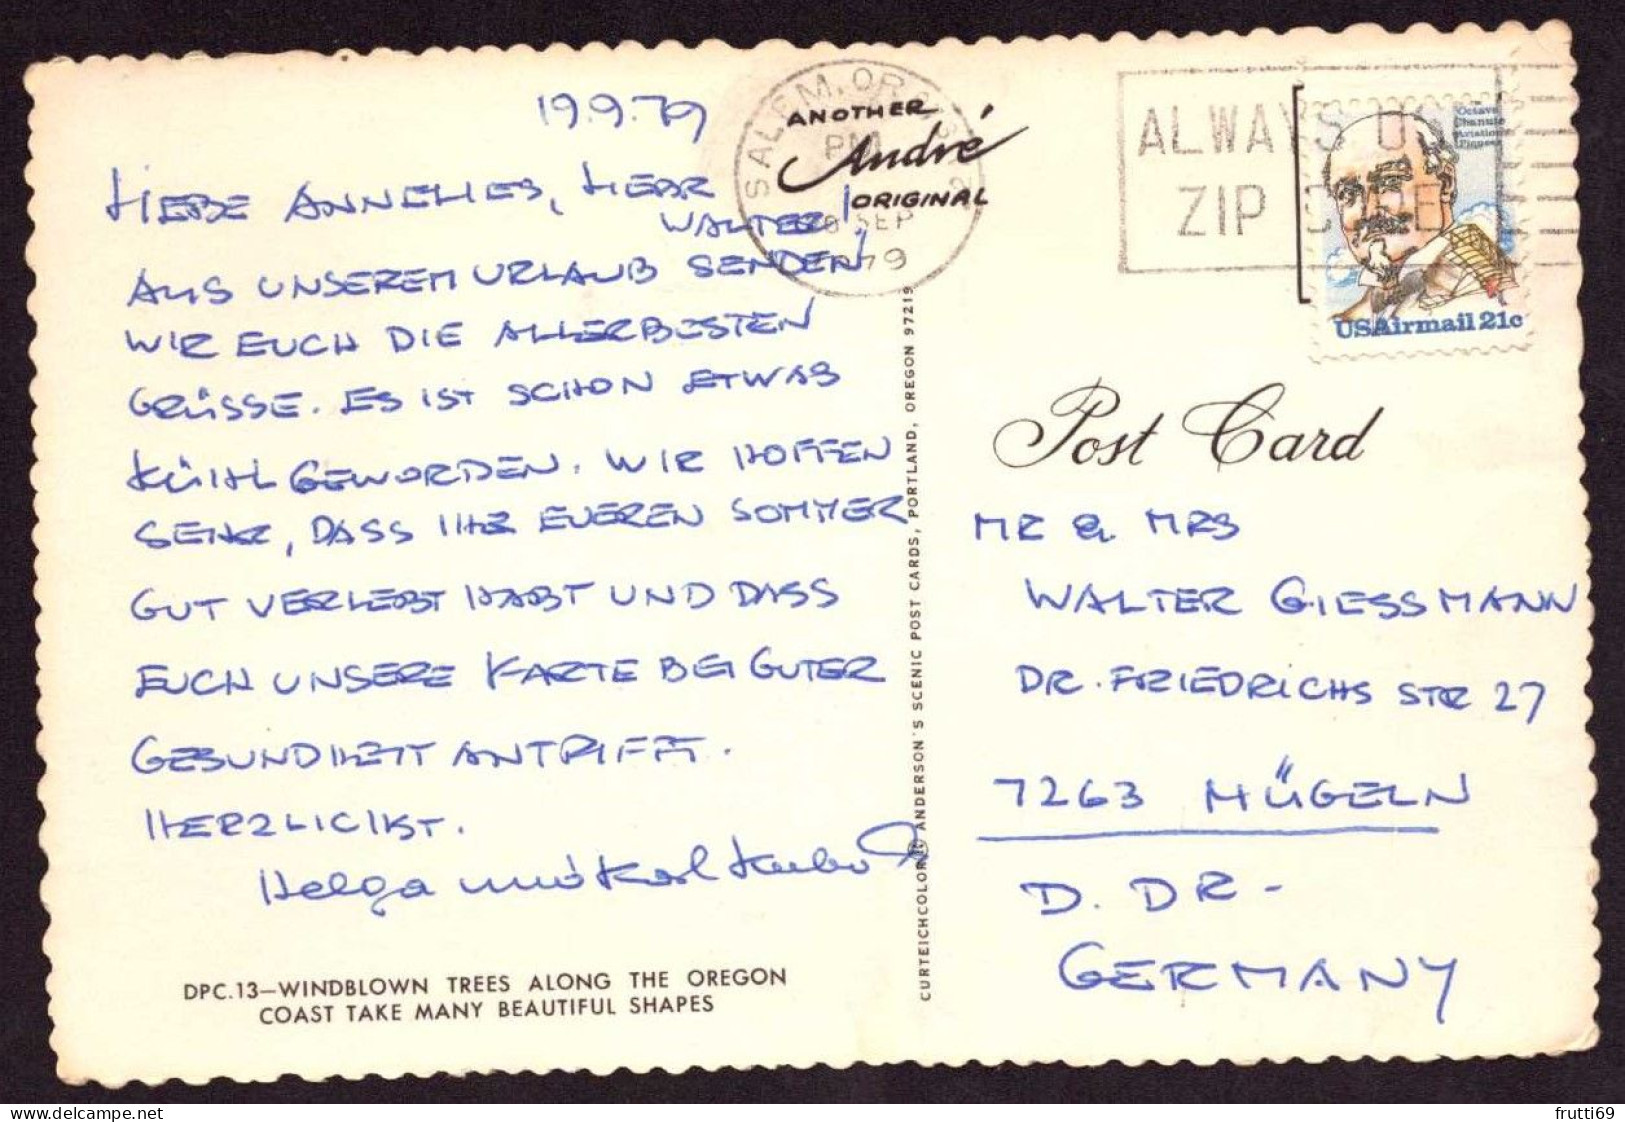 19.9.79
LIEBE ANNELIES, LIEBER
WALTER!
AUS UNSEREM URLAUB SENDEN
WIR EUCH DIE ALLERBESTEN
GRÜSSE. ES IST SCHON ETWAS
KÜHL GEWORDEN. WIR HOFFEN
SEHR, DASS IHR EUEREN SOMMER
GUT VERLEBT HABT UND DASS
EUCH UNSERE KARTE BEI GUTER
GESUNDHEIT ANTRIFFT.
HERZLICHST.
Helga und Karl
DPC.13—WINDBLOWN TREES ALONG THE OREGON
COAST TAKE MANY BEAUTIFUL SHAPES
SALEM, OR
PM
SEP
1979
ANOTHER
André
ORIGINAL
CURTEICHCOLOR® ANDERSON'S SCENIC POST CARDS, PORTLAND, OREGON 97219
ALWAYS USE
ZIP CODE
Octave
Chanute
Aviation
Pioneer
USAirmail 21c
Post Card
MR & MRS
WALTER GIESSMANN
DR. FRIEDRICHS STR 27
7263 MÜGELN
D. DR -
GERMANY
frutti69